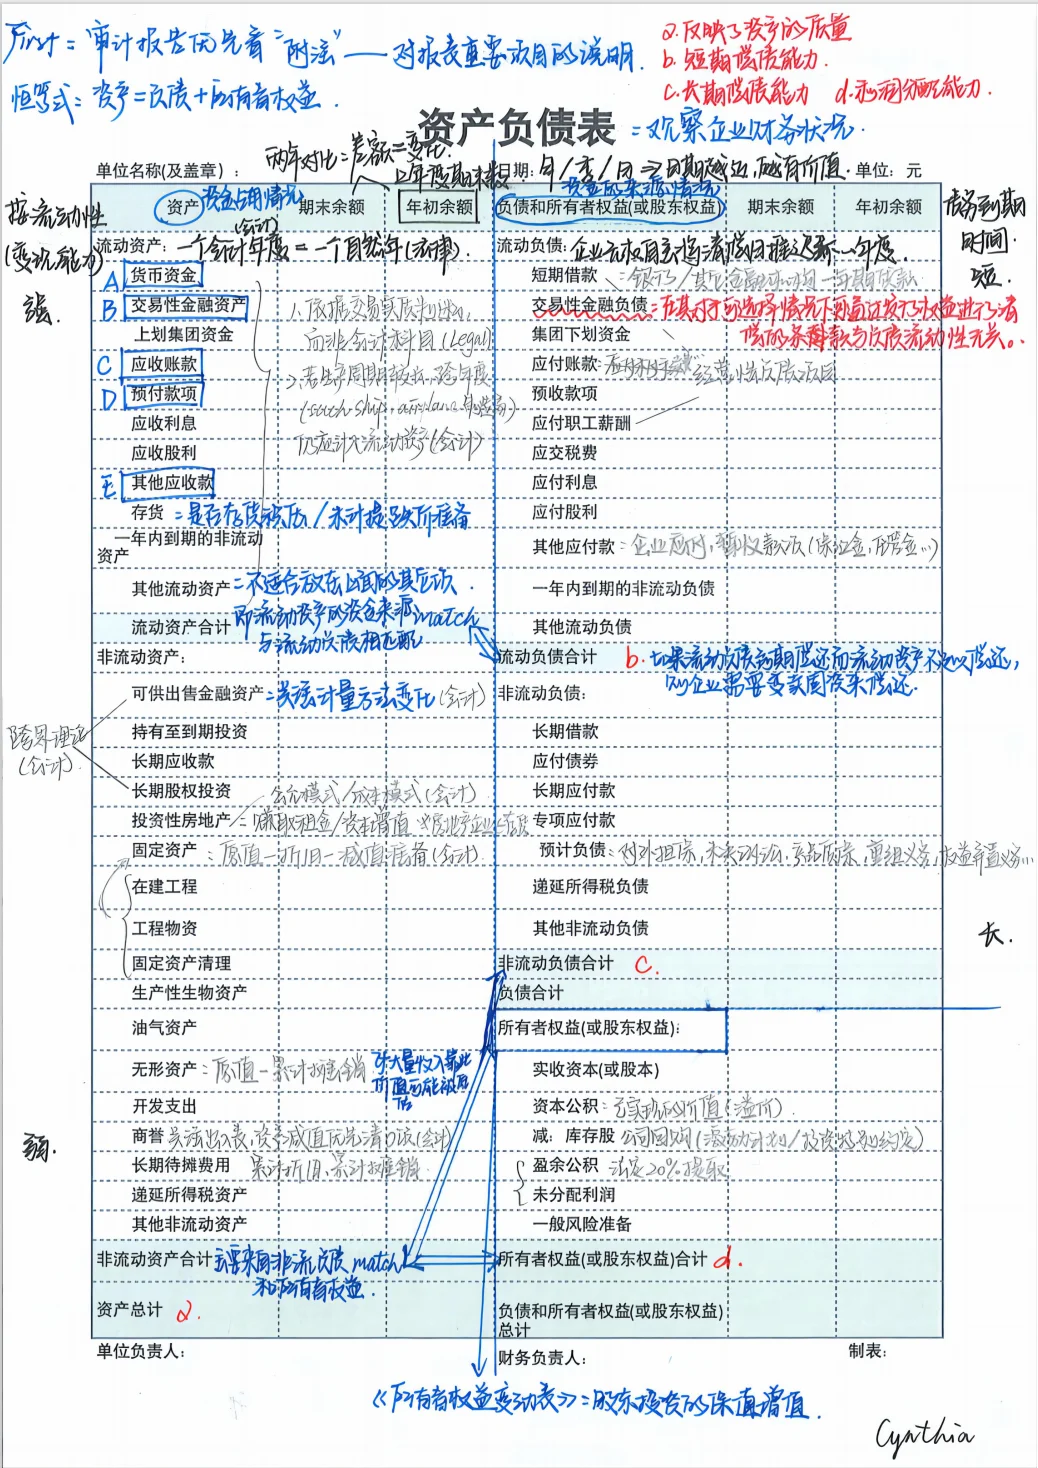 First = 审计报告优先看"附注"——对报表重要项目的说明.
恒等式: 资产=负债+所有者权益.
a.反映了资产的质量
b.短期偿债能力.
c.长期偿债能力 d.利润分配能力.
资产负债表 =观察企业财务状况.
两年对比=差额=变化.
上年度期末数
单位名称(及盖章): 日期: 年/季/月⇒日期越近,越有价值. 单位: 元
按流动性
(变现能力)
强.
债务到期
时间.
短.
资产 资金占用情况
(会计)
期末余额 年初余额
资金的来源情况
负债和所有者权益(或股东权益) 期末余额 年初余额
流动资产: 一个会计年度=一个自然年(法律) 流动负债:
A 货币资金 短期借款
B 交易性金融资产 交易性金融负债
上划集团资金 集团下划资金
1.依据交易实质
而非会计科目(Legal)
C 应收账款 应付账款: 经营性负债项目
D 预付款项 预收款项
(such ship, airplane
仍应计入流动资产(会计)
应收利息 应付职工薪酬
应收股利 应交税费
E 其他应收款 应付利息
存货 =是否存货积压/未计提跌价准备 应付股利
一年内到期的非流动资产 其他应付款: 企业应付,暂收款项(保证金,押金…)
其他流动资产=不适合放在上面的其它项. 一年内到期的非流动负债
流动资产合计 即流动资产的资金来源match
与流动负债相匹配
其他流动负债
非流动资产: 流动负债合计 b.如果流动负债到期偿还而流动资产不足以偿还,
则企业需要变卖固资来偿还.
可供出售金融资产=关注计量方法变化(会计) 非流动负债:
跨界理论
(会计).
持有至到期投资 长期借款
长期应收款 应付债券
长期股权投资 长期应付款
公允模式/成本模式(会计)
投资性房地产 =赚取租金/资本增值 专项应付款
固定资产: 原值-折旧-减值准备(会计) 预计负债: 对外担保,未决诉讼,产品质保,重组义务,
在建工程 递延所得税负债
工程物资 其他非流动负债
长.
固定资产清理 非流动负债合计 c.
生产性生物资产 负债合计
油气资产 所有者权益(或股东权益):
无形资产: 原值-累计摊销 实收资本(或股本)
开发支出 资本公积: (溢价).
弱.
商誉 减: 库存股 公司回购
长期待摊费用 累计折旧,累计摊销. 盈余公积 法定20%提取
递延所得税资产 未分配利润
其他非流动资产 一般风险准备
非流动资产合计 主要来自非流负债match
和所有者权益.
所有者权益(或股东权益)合计 d.
资产总计 a. 负债和所有者权益(或股东权益)总计
单位负责人: 财务负责人: 制表:
《所有者权益变动表》=股东投资的保值增值.
Cynthia